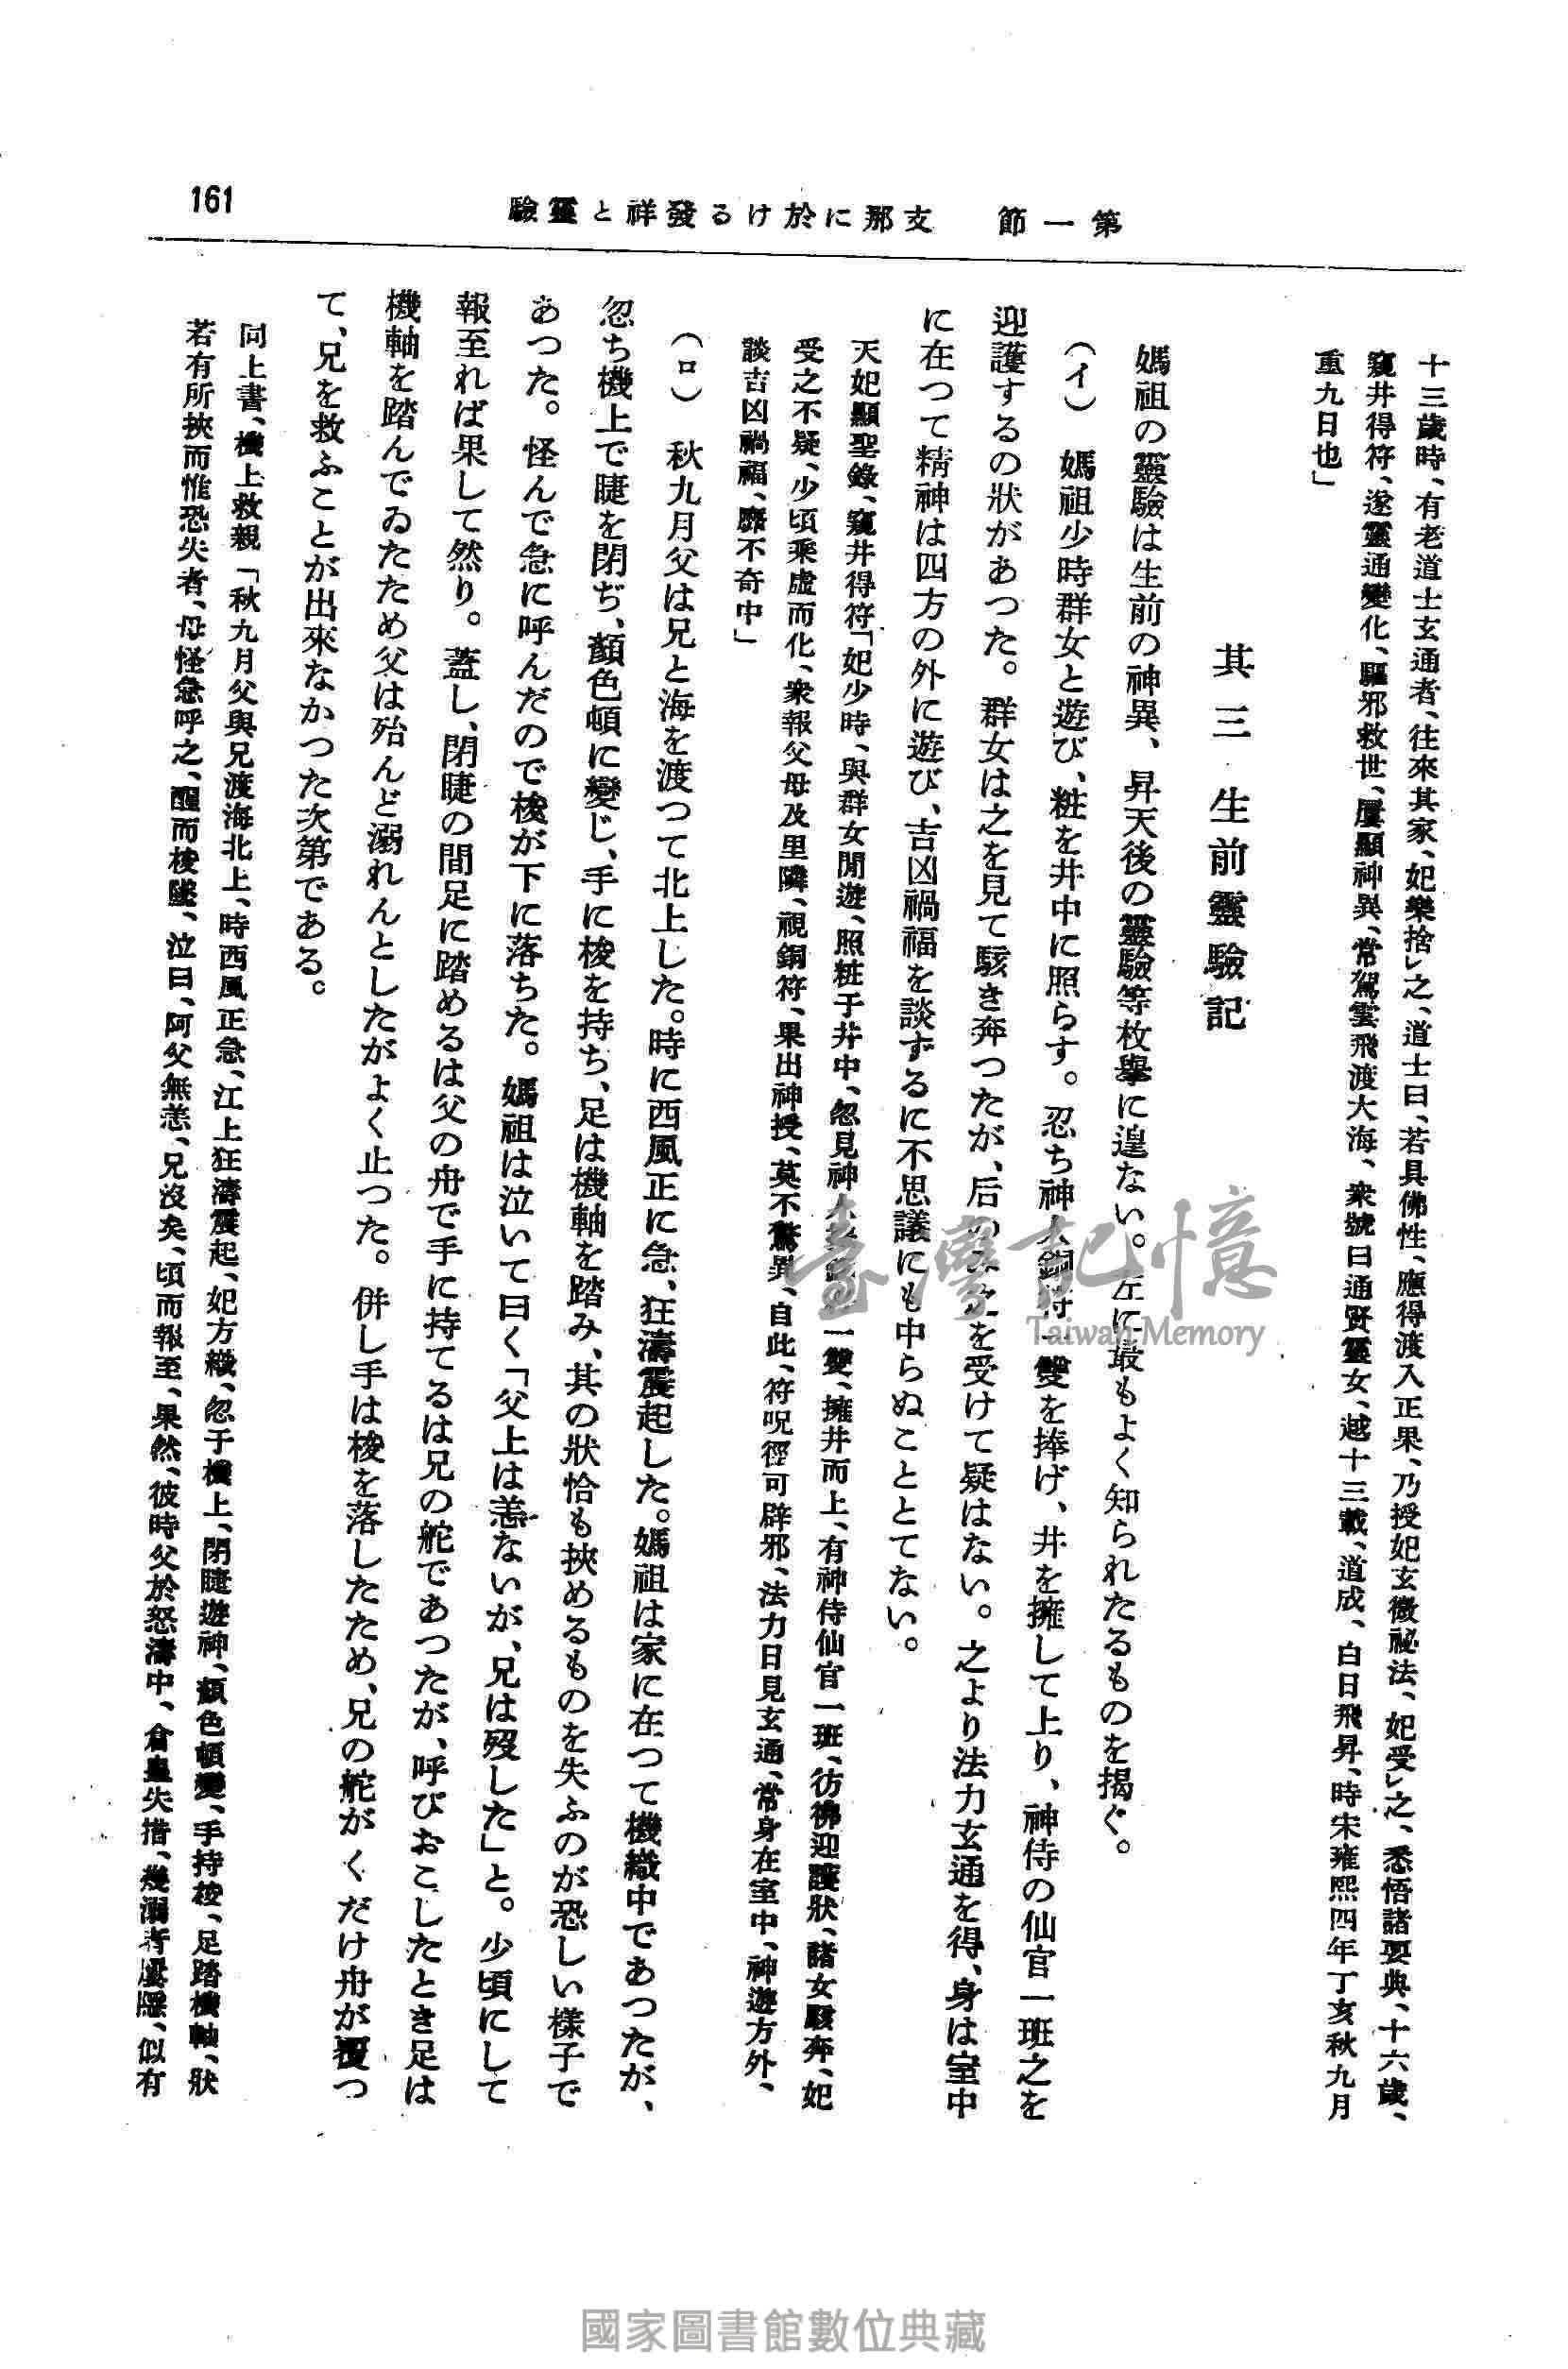 161
第一節　支那に於ける發祥と靈驗
十三歲時、有老道士玄通者、往來其家、妃樂捨レ之、道士曰、若具佛性、應得渡入正果、乃授妃玄微祕法、妃受レ之、悉悟諸要典、十六歲、
窺井得符、遂靈通變化、驅邪救世、屢顯神異、常駕雲飛渡大海、衆號曰通賢靈女、越十三載、道成、白日飛昇、時宋雍熙四年丁亥秋九月
重九日也」
其三　生前靈驗記
媽祖の靈驗は生前の神異、昇天後の靈驗等枚擧に遑ない。左に最もよく知られたるものを揭ぐ。
（イ）　媽祖少時群女と遊び、粧を井中に照らす。忍ち神人銅符一雙を捧げ、井を擁して上り、神侍の仙官一班之を
迎護するの狀があつた。群女は之を見て駭き奔つたが、后のみ之を受けて疑はない。之より法力玄通を得、身は室中
に在つて精神は四方の外に遊び、吉凶禍福を談ずるに不思議にも中らぬこととてない。
天妃顯聖錄、窺井得符「妃少時、與群女閒遊、照粧于井中、忽見神人 一雙、擁井而上、有神侍仙官一班、彷彿迎護狀、諸女駭奔、妃
受之不疑、少頃乘虛而化、衆報父母及里隣、視銅符、果出神授、莫不驚異、自此、符呪徑可辟邪、法力日見玄通、常身在室中、神遊方外、
談吉凶禍福、靡不奇中」
（ロ）　秋九月父は兄と海を渡つて北上した。時に西風正に急、狂濤震起した。媽祖は家に在つて機織中であつたが、
忽ち機上で睫を閉ぢ、顏色頓に變じ、手に梭を持ち、足は機軸を踏み、其の狀恰も挾めるものを失ふのが恐しい樣子で
あつた。怪んで急に呼んだので梭が下に落ちた。媽祖は泣いて曰く「父上は恙ないが、兄は歿した」と。少頃にして
報至れば果して然り。蓋し、閉睫の間足に踏めるは父の舟で手に持てるは兄の舵であつたが、呼びおこしたとき足は
機軸を踏んでゐたため父は殆んど溺れんとしたがよく止つた。併し手は梭を落したため、兄の舵がくだけ舟が覆つ
て、兄を救ふことが出來なかつた次第である。
同上書、機上救親「秋九月父與兄渡海北上、時西風正急、江上狂濤震起、妃方織、忽于機上、閉睫遊神、顏色頓變、手持梭、足踏機軸、狀
若有所挾而惟恐失者、母怪急呼之、醒而梭墜、泣曰、阿父無恙、兄沒矣、頃而報至、果然、彼時父於怒濤中、倉皇失措、幾溺者屢隱、似有
臺灣記憶
Taiwan Memory
國家圖書館數位典藏